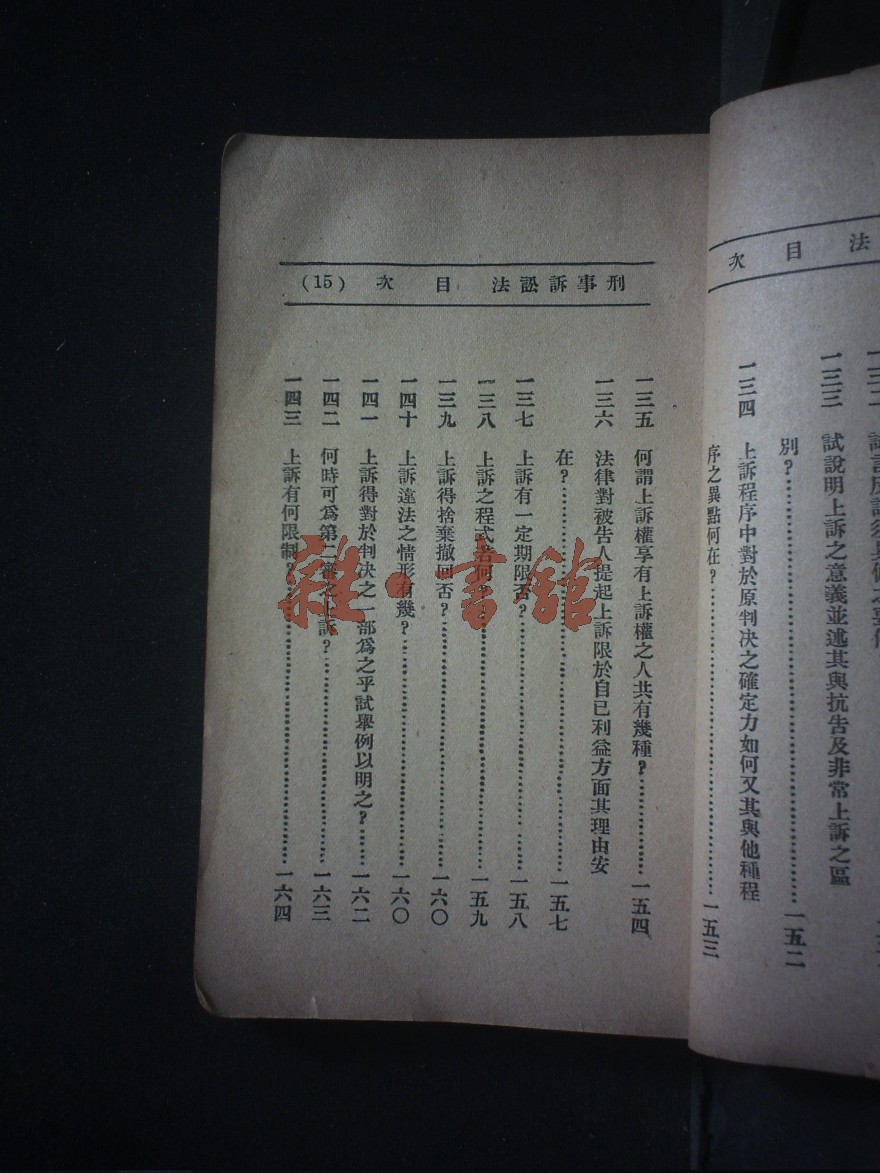 法 目 次
一三三 試說明上訴之意義並述其與抗告及非常上訴之區
別?……一五二
一三四 上訴程序中對於原判决之確定力如何又其與他種程
序之異點何在?……一五三
刑事訴訟法 目 次 (15)
一三五 何謂上訴權享有上訴權之人共有幾種?……一五四
一三六 法律對被告人提起上訴限於自已利益方面其理由安
在?……一五七
一三七 上訴有一定期限否?……一五八
一三八 上訴之程式若何?……一五九
一三九 上訴得捨棄撤回否?……一六〇
一四十 上訴違法之情形有幾?……一六〇
一四一 上訴得對於判决之一部爲之乎試舉例以明之?……一六二
一四二 何時可爲第二審之上訴?……一六三
一四三 上訴有何限制?……一六四
雜·書館